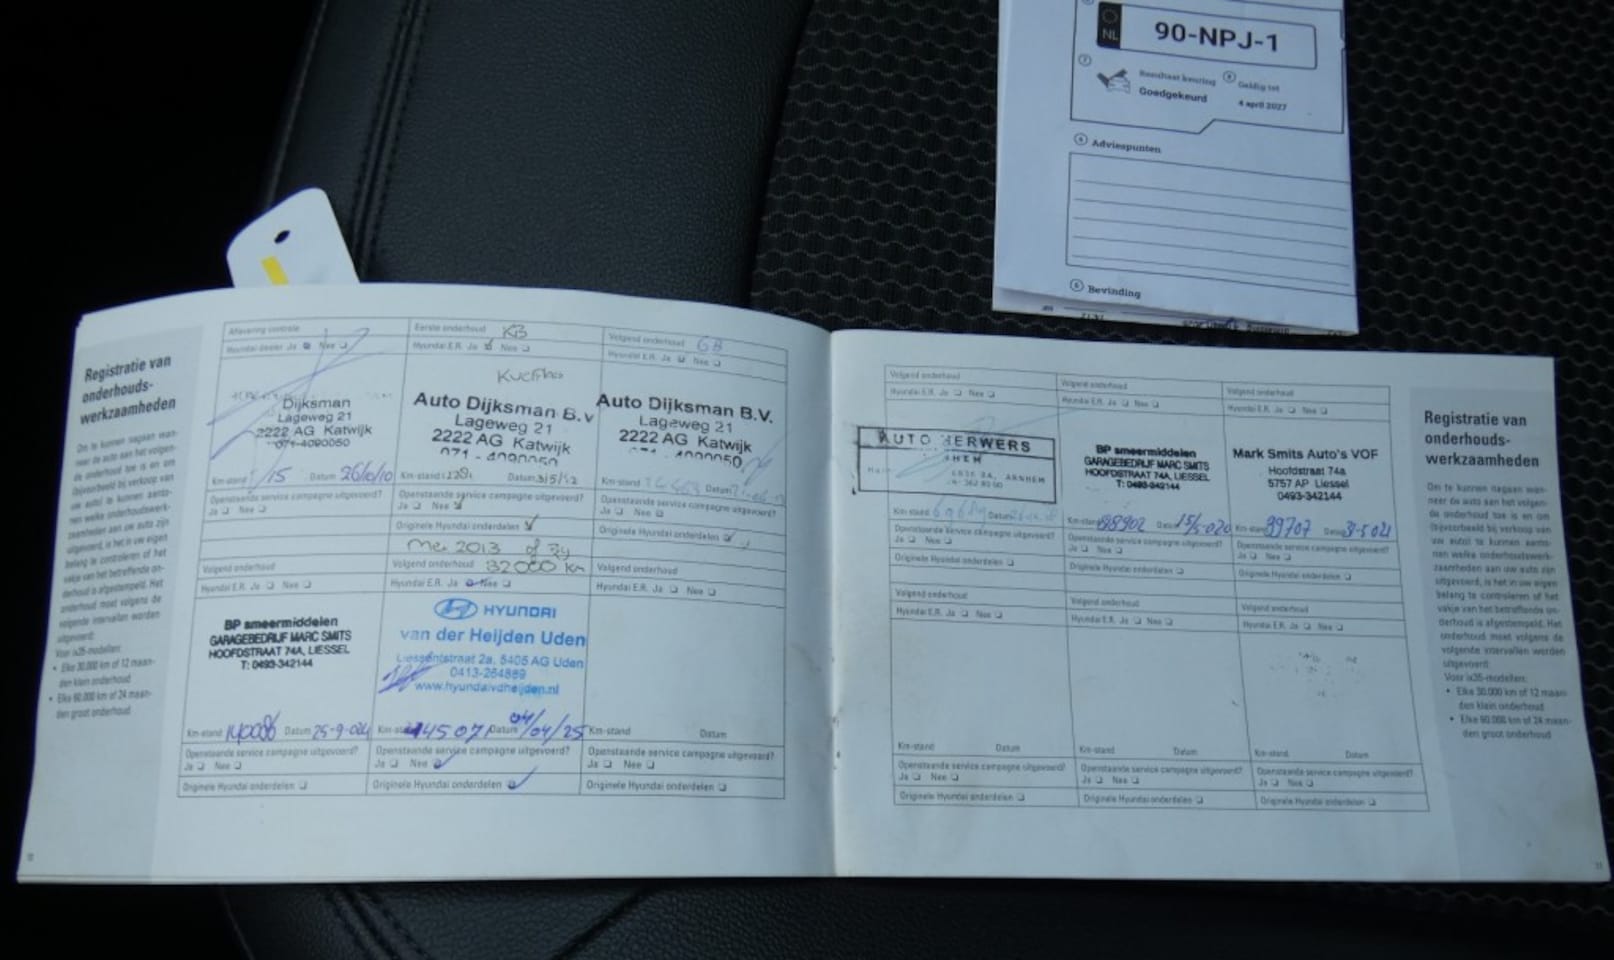 NL
90-NPJ-1
Resultaat keuring
Goedgekeurd
Geldig tot
4 april 2027
Adviespunten
Bevinding
Registratie van
onderhouds-
werkzaamheden
Voor ix35-modellen:
• Elke 30.000 km of 12 maan-
den klein onderhoud
• Elke 60.000 km of 24 maan-
den groot onderhoud
Aflevering controle
Hyundai dealer Ja Nee
Dijksman
Lageweg 21
2222 AG Katwijk
071-4090050
Km-stand 15 Datum 26/10/10
Openstaande service campagne uitgevoerd?
Ja Nee
Eerste onderhoud KB
Hyundai E.R. Ja Nee
Auto Dijksman B.v
Lageweg 21
2222 AG Katwijk
071-4090050
Km-stand Datum
Openstaande service campagne uitgevoerd?
Ja Nee
Originele Hyundai onderdelen
Mei 2013 of bij
32000 km
Volgend onderhoud GB
Hyundai E.R. Ja Nee
Auto Dijksman B.V.
Lageweg 21
2222 AG Katwijk
071-4090050
Km-stand Datum
Openstaande service campagne uitgevoerd?
Ja Nee
Originele Hyundai onderdelen
Volgend onderhoud
Hyundai E.R. Ja Nee
BP smeermiddelen
GARAGEBEDRIJF MARC SMITS
HOOFDSTRAAT 74A, LIESSEL
T: 0493-342144
Km-stand 140086 Datum 25-9-024
Openstaande service campagne uitgevoerd?
Ja Nee
Originele Hyundai onderdelen
Volgend onderhoud
Hyundai E.R. Ja Nee
HYUNDAI
van der Heijden Uden
Liessentstraat 2a, 5405 AG Uden
0413-254869
www.hyundaivdheijden.nl
Km-stand 144507 Datum 04/04/25
Openstaande service campagne uitgevoerd?
Ja Nee
Originele Hyundai onderdelen
Volgend onderhoud
Hyundai E.R. Ja Nee
Km-stand Datum
Openstaande service campagne uitgevoerd?
Ja Nee
Originele Hyundai onderdelen
Volgend onderhoud
Hyundai E.R. Ja Nee
AUTO HERWERS
ARNHEM
Km-stand Datum
Openstaande service campagne uitgevoerd?
Ja Nee
Originele Hyundai onderdelen
Volgend onderhoud
Hyundai E.R. Ja Nee
BP smeermiddelen
GARAGEBEDRIJF MARC SMITS
HOOFDSTRAAT 74A, LIESSEL
T: 0493-342144
Km-stand 88902 Datum 15/5-020
Openstaande service campagne uitgevoerd?
Ja Nee
Originele Hyundai onderdelen
Volgend onderhoud
Hyundai E.R. Ja Nee
Mark Smits Auto's VOF
Hoofdstraat 74a
5757 AP Liessel
0493-342144
Km-stand 99707 Datum 31-5-021
Openstaande service campagne uitgevoerd?
Ja Nee
Originele Hyundai onderdelen
Volgend onderhoud
Hyundai E.R. Ja Nee
Km-stand Datum
Openstaande service campagne uitgevoerd?
Ja Nee
Originele Hyundai onderdelen
Volgend onderhoud
Hyundai E.R. Ja Nee
Km-stand Datum
Openstaande service campagne uitgevoerd?
Ja Nee
Originele Hyundai onderdelen
Volgend onderhoud
Hyundai E.R. Ja Nee
Km-stand Datum
Openstaande service campagne uitgevoerd?
Ja Nee
Originele Hyundai onderdelen
Registratie van
onderhouds-
werkzaamheden
Om te kunnen nagaan wan-
neer de auto aan het volgen-
de onderhoud toe is en om
(bijvoorbeeld bij verkoop van
uw auto) te kunnen aanto-
nen welke onderhoudswerk-
zaamheden aan uw auto zijn
uitgevoerd, is het in uw eigen
belang te controleren of het
vakje van het betreffende on-
derhoud is afgestempeld. Het
onderhoud moet volgens de
volgende intervallen worden
uitgevoerd:
Voor ix35-modellen:
• Elke 30.000 km of 12 maan-
den klein onderhoud
• Elke 60.000 km of 24 maan-
den groot onderhoud